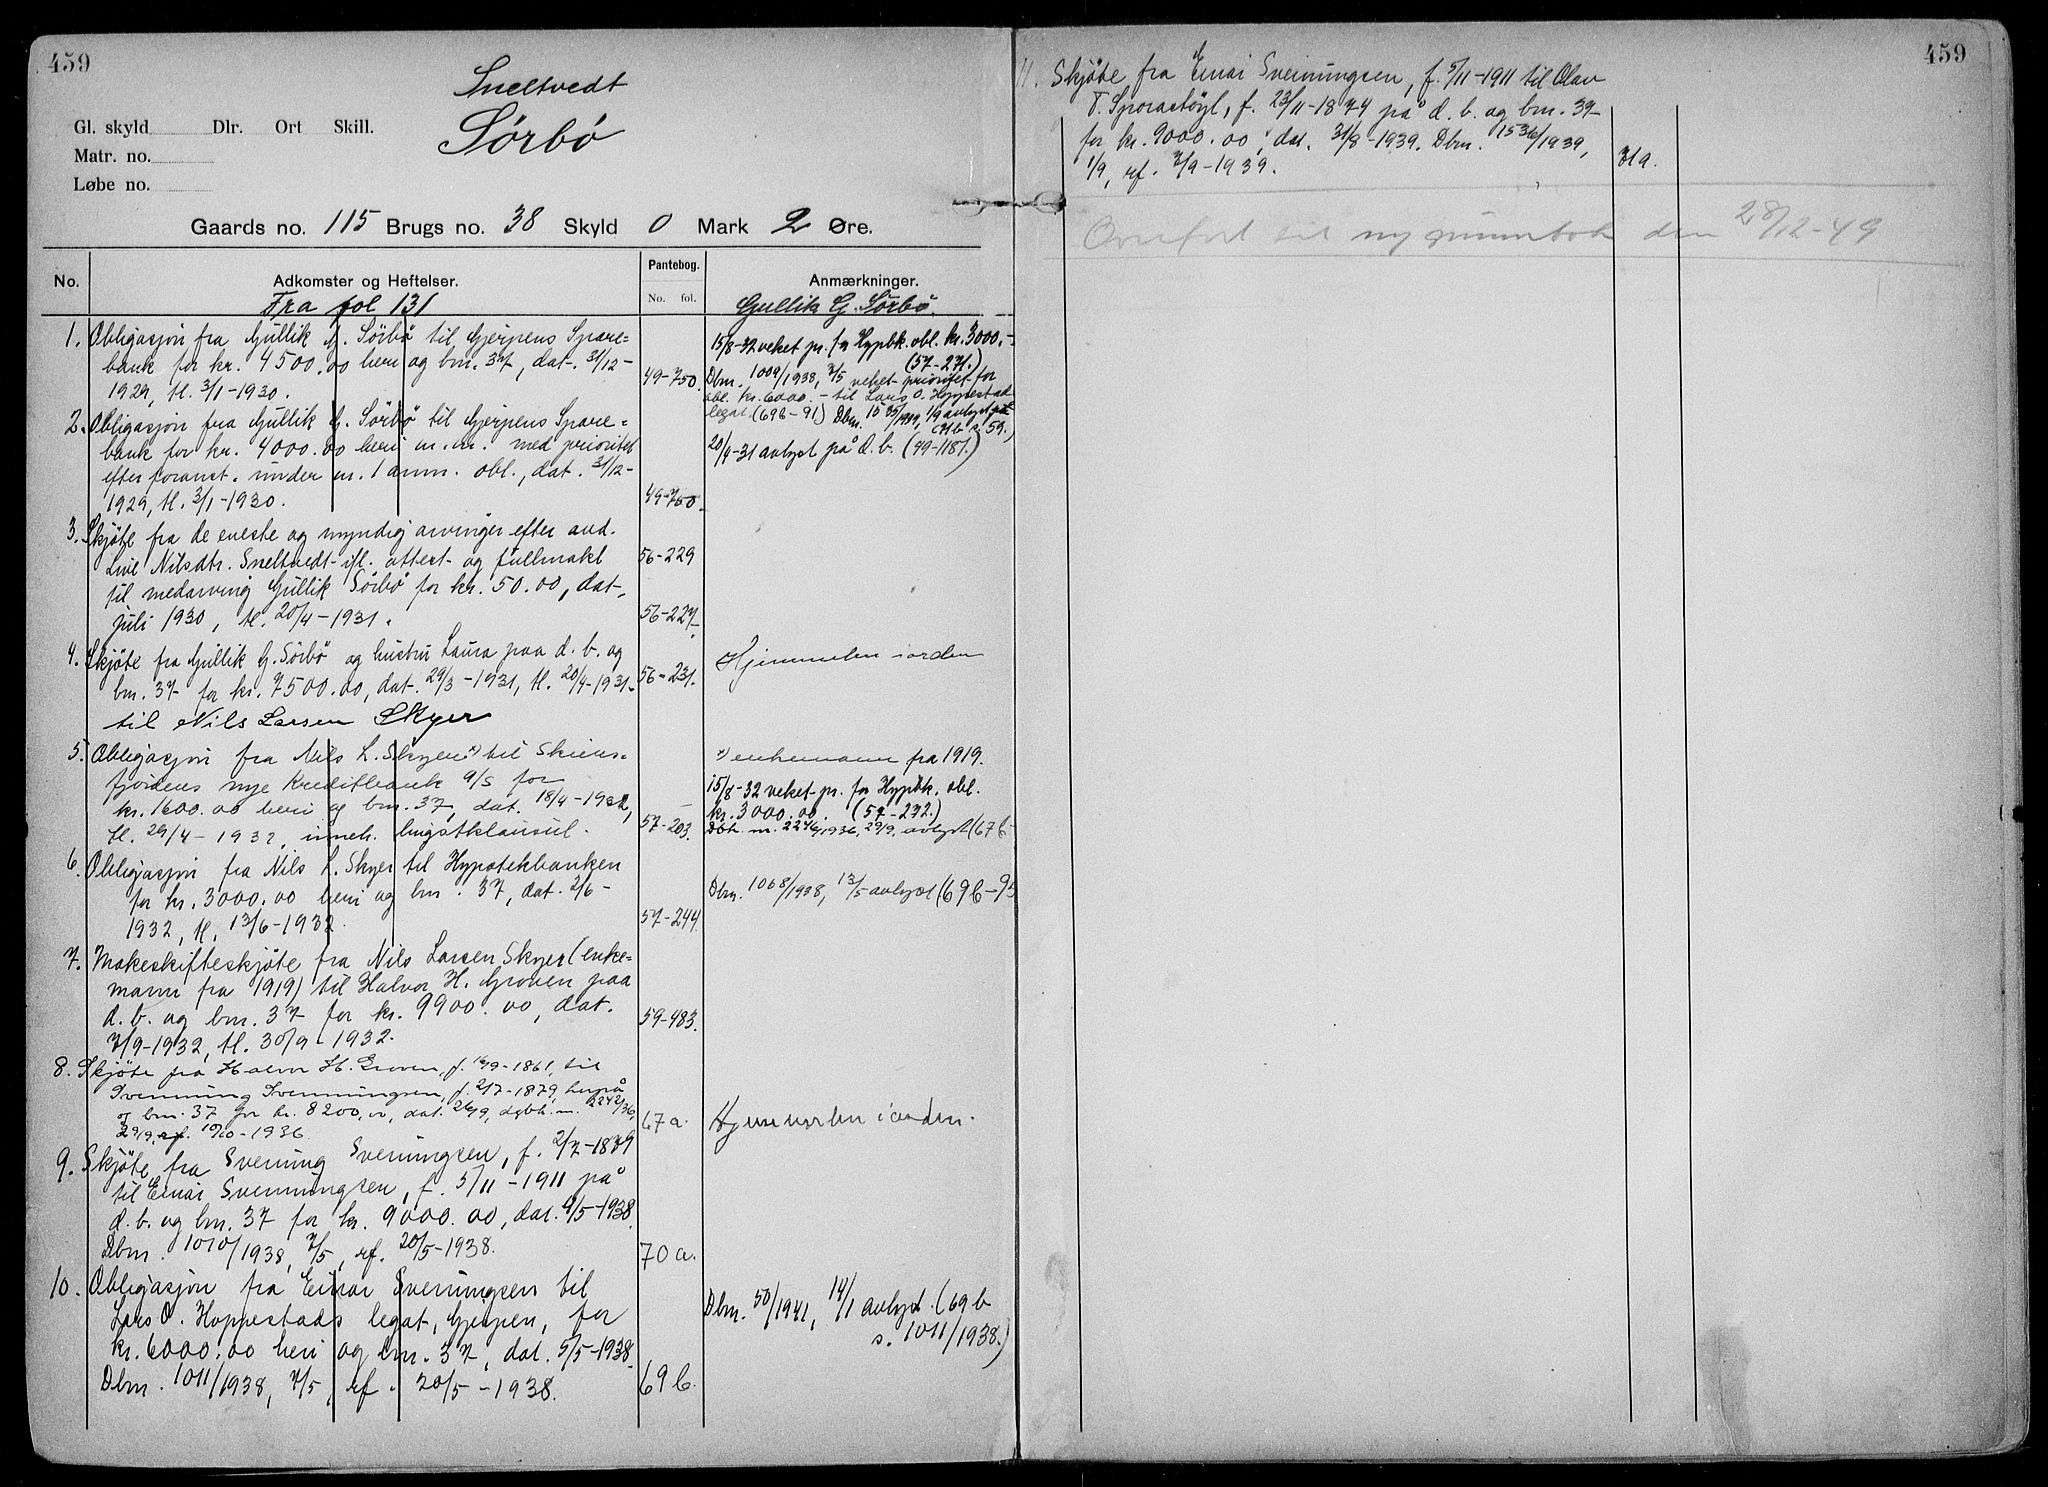 459
Sneltvedt
Sörbö
Gl. skyld Dlr. Ort Skill.
Matr. no.
Løbe no.
Gaards no. 115 Brugs no. 38 Skyld 0 Mark 2 Øre.
No. Adkomster og Heftelser. Pantebog. No. fol. Anmærkninger.
Fra fol 131
Gullik G. Sörbö.
1. Obligasjon fra Gullik G. Sörbö til Gjerpens Spare=
bank for kr. 4500.00 heri og bnr. 37, dat. 31/12-
1929, tl. 3/1-1930. 49-750.
15/8-32 veket pr. for Hypbk. obl. kr. 3000,-
(57-271.)
Dbnr. 1009/1938, 7/5 veket prioritet for
obl. kr. 6000.- til Lars O. Hoppestads
legat (69b-91) Dbnr. 1535/1939, 1/9 avlyst
2. Obligasjon fra Gullik G. Sörbö til Gjerpens Spare=
bank for kr. 4000.00 heri m.m. med prioritet
efter foranst. under nr. 1 anm. obl., dat. 31/12-
1929, tl. 3/1-1930. 49-750.
20/4-31 avlyst på d. b. (49-1181.)
3. Skjöte fra de eneste og myndig arvinger efter avd.
Live Nilsdtr. Sneltvedt ifl. attest og fullmakt 56-229
til medarving Gullik Sörbö for kr. 50.00, dat.
juli 1930, tl. 20/4-1931. 56-227.
4. Skjöte fra Gullik G. Sörbö og hustru Laura paa d. b. og
bnr. 37 for kr. 7500.00, dat. 29/3-1931, tl. 20/4-1931. 56-231.
til Nils Larsen Skyer
Hjemmelen i orden
5. Obligasjon fra Nils L. Skyen x) til Skiens=
fjordens nye Kreditbank A/S for
kr. 1600.00 heri og bnr. 37, dat. 18/4-1932,
tl. 29/4-1932, inneh. 57-203.
x) enkemann fra 1919.
15/8-32 veket pr. for Hypbk. obl.
kr. 3000.00. (57-272.)
Dbh. nr. 2246/1936, 29/9, avlyst (67b-
6. Obligasjon fra Nils L. Skyer til Hypotekbanken
for kr. 3000.00 heri og bnr. 37, dat. 2/6-
1932, tl. 13/6-1932. 57-244.
Dbnr. 1068/1938, 13/5 avlyst (69b-95
7. Makeskifteskjöte fra Nils Larsen Skyer (enke=
mann fra 1919) til Halvor H. Groven paa
d. b. og bnr. 37 for kr. 9900.00, dat.
7/9-1932, tl. 30/9-1932. 59-483.
8. Skjöte fra Halvor H. Groven, f. 16/9-1861, til
Svenning Svenningsen, f. 2/7-1879, herpå
og bnr. 37 for kr. 8200,00, dat. 26/9, dgbh. nr. 2242/36,
29/9, rf. 10/10-1936. 67a.
Hjemmelen i orden.
9. Skjöte fra Svening Sveningsen, f. 2/7-1879
til Einar Svenningsen, f. 5/11-1911 på
d. b. og bnr. 37 for kr. 9000.00, dat. 6/5-1938.
Dbnr. 1010/1938, 7/5, rf. 20/5-1938. 70a.
10. Obligasjon fra Einar Sveningsen til
Lars O. Hoppestads legat, Gjerpen, for
kr. 6000.00 heri og bnr. 37, dat. 5/5-1938.
Dbnr. 1011/1938, 7/5, rf. 20/5-1938. 69b.
Dbnr. 50/1941, 14/1 avlyst. (69b
s. 1011/1938.)
459
11. Skjöte fra Einar Sveinungsen, f. 5/11-1911 til Olav
T. Sporastöyl, f. 23/11-1874 på d. b. og bnr. 37
for kr. 9000.00, dat. 31/8-1939. Dbnr. 1536/1939,
1/9, rf. 7/9-1939. 71a.
Overfört til ny grunnbok den 28/12-49